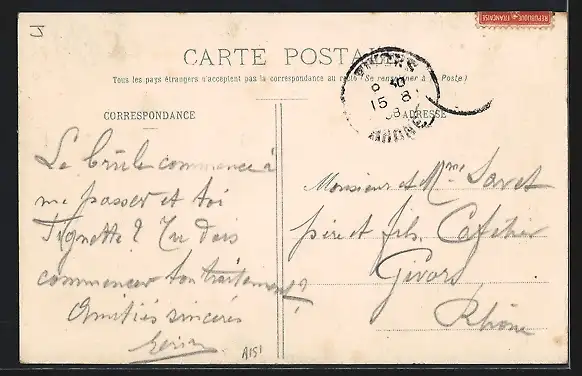 CARTE POSTALE
Tous les pays étrangers n'acceptent pas la correspondance au recto (Se renseigner à la Poste)
CORRESPONDANCE
ADRESSE
RÉPUBLIQUE FRANÇAISE
GIVORS
15 8
RHONE
Le brûle commence à
me passer et toi
Tu dois
commencer ton traitement?
Amitiés sincères
A151
Monsieur et Mme
père et fils, Cafetier
Givors
Rhône